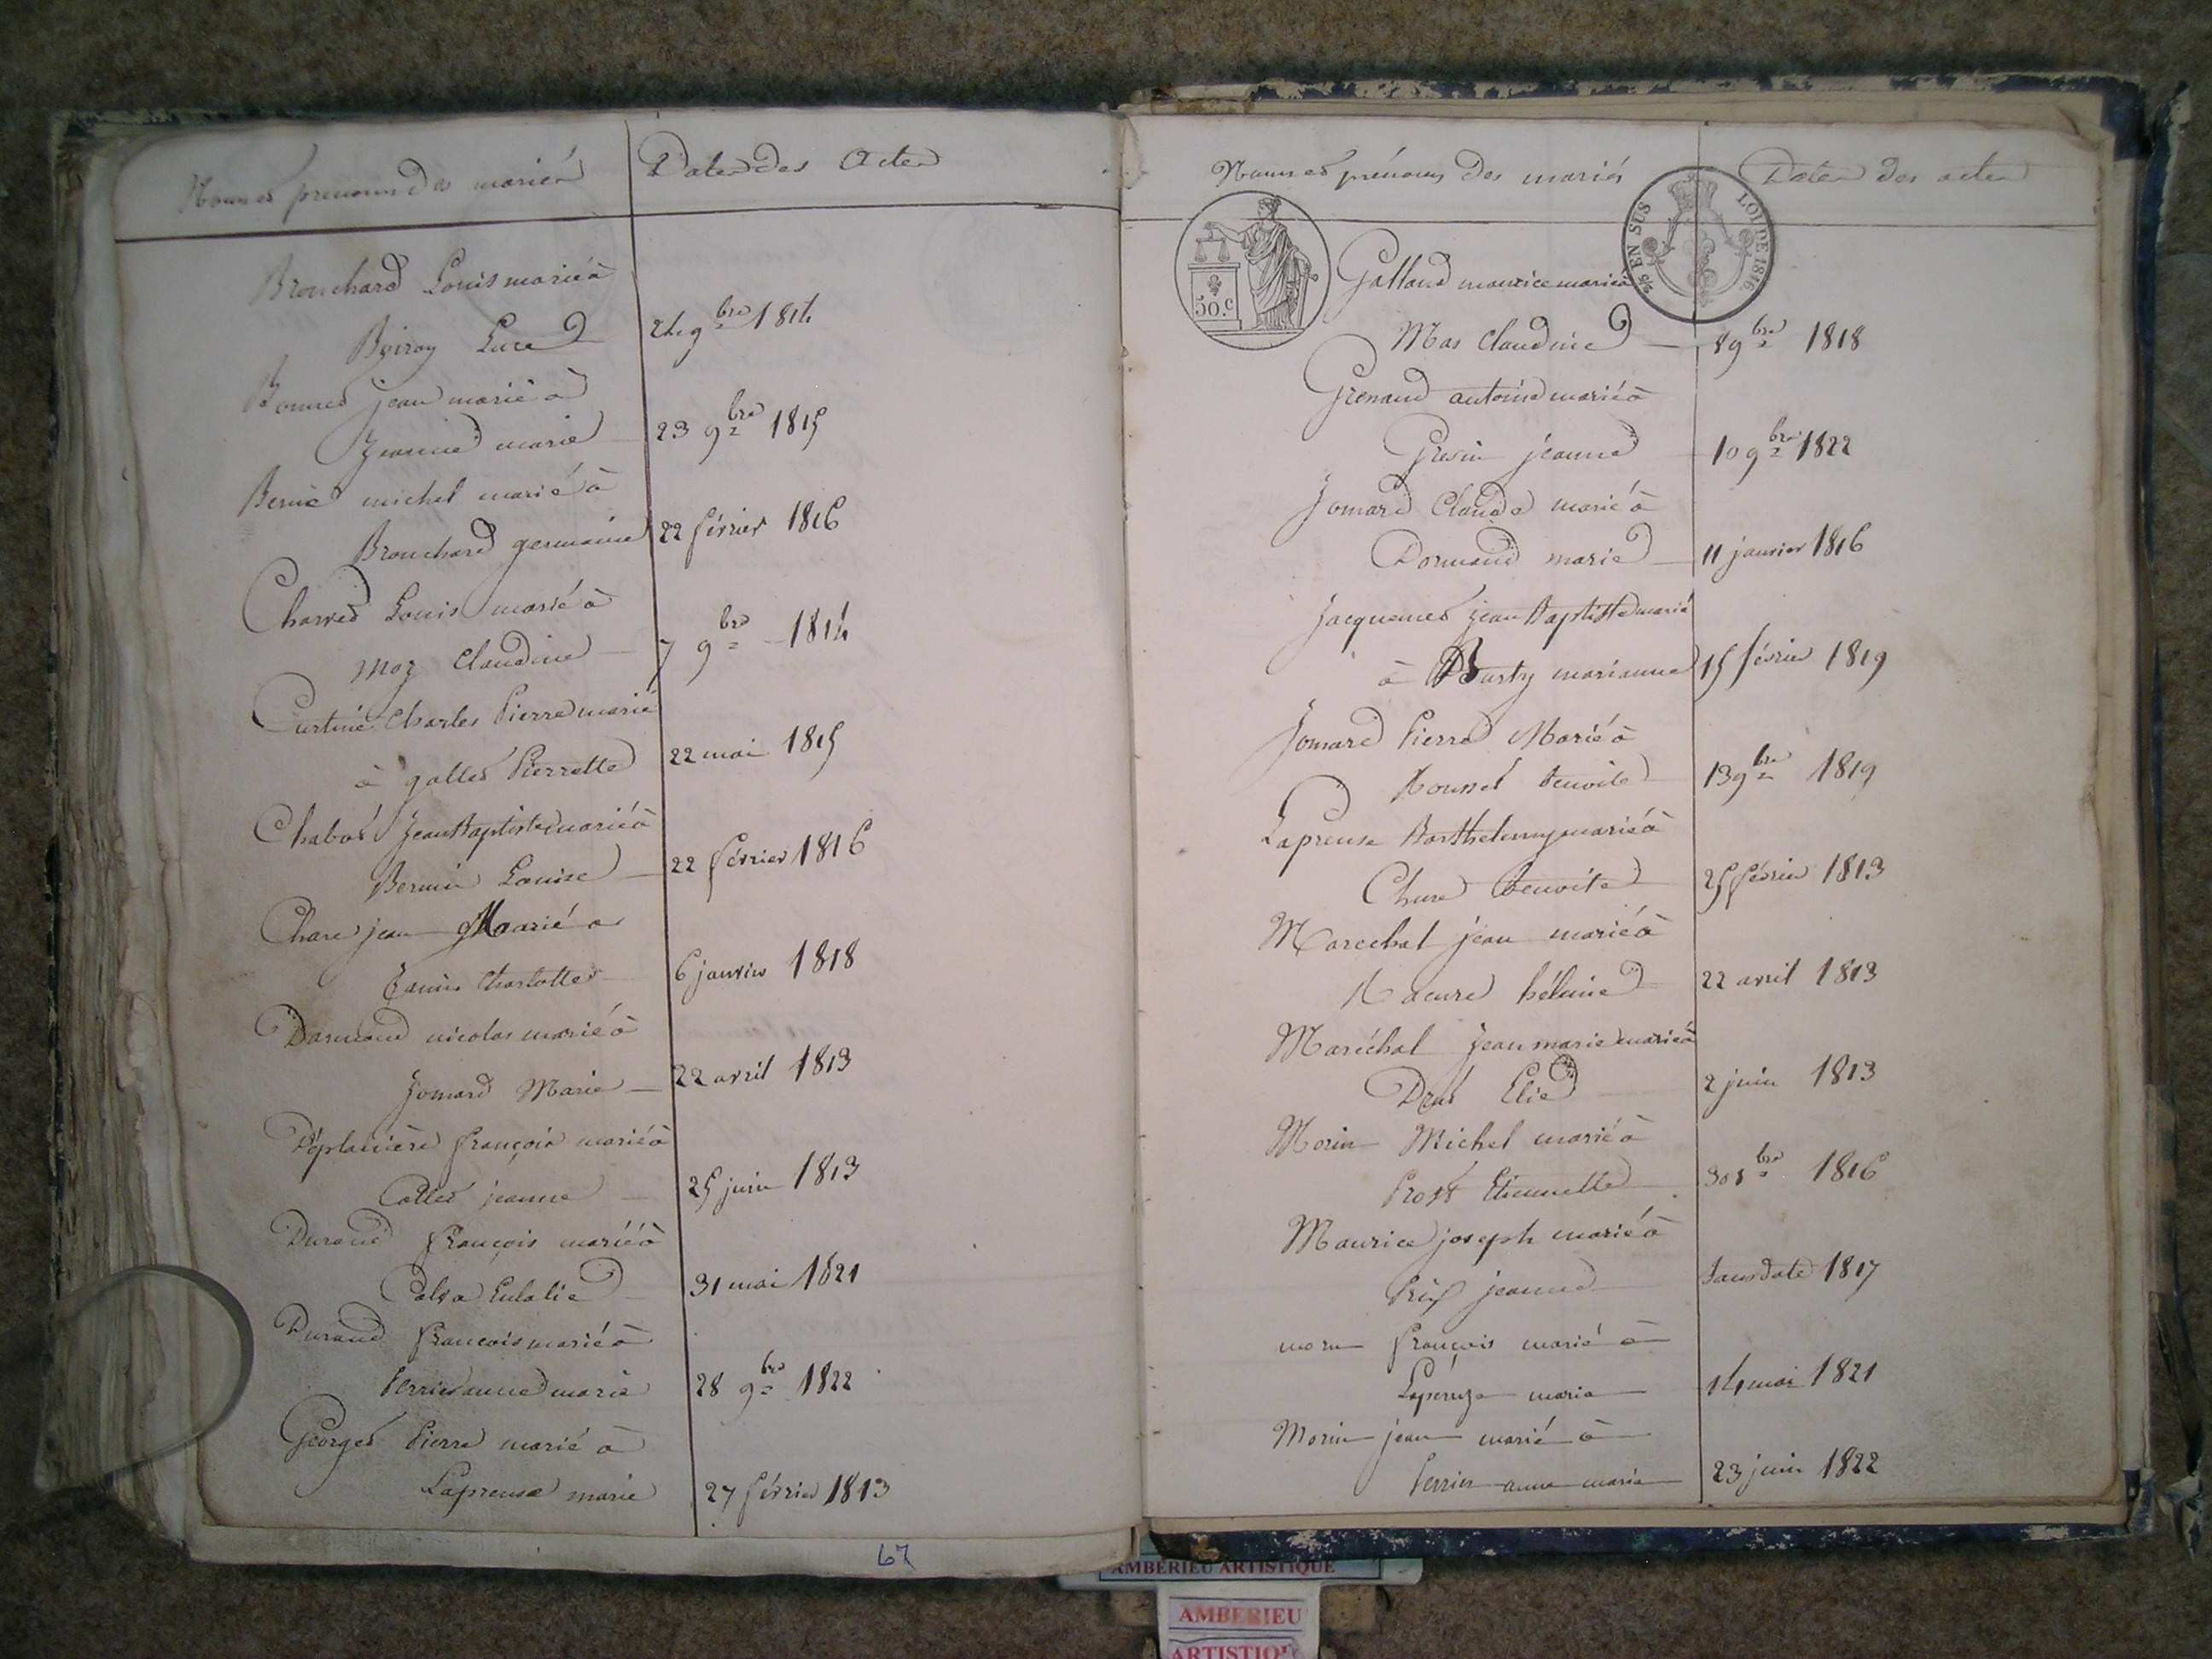 Noms et prenoms des mariés
Dates des Actes
Brouchard Louis marié à
Luce
24 9bre 1814
jean marié à
Jeanne marie
23 9bre 1815
michel marié à
Brouchard germaine
22 février 1816
Charvet Louis marié à
moz Claudine
7 9bre 1814
Curtiné Charles Pierre marié
à gallet Pierrette
22 mai 1815
Chabot Jean Baptiste marié à
Bernin Louise
22 février 1816
jean Marié a
Janin Charlotte
6 janvier 1818
Dormand nicolas marié à
Jomard Marie
22 avril 1813
Déplancière françois marié à
jeanne
25 juin 1813
Durand françois marié à
Eulalie
31 mai 1821
Durand françois marié à
Perrier anne marie
28 9bre 1822
Georges Pierre marié à
Lapreuse marie
27 février 1813
67
Noms et prénoms des mariés
Dates des actes
50.c
2/5 EN SUS
LOI DE 1816
Galland maurice marié à
Mas Claudine
8 9bre 1818
Grenand antoine marié à
jeanne
10 9bre 1822
Jomard Claude marié à
Dormand marie
11 janvier 1816
Jacquemet Jean Baptiste marié
à Burty marianne
15 février 1819
Jomard Pierre Marié à
Benoite
13 9bre 1819
Lapreuse Barthelemy marié à
Benoite
25 février 1813
Marechal jean marié à
héleine
22 avril 1813
Maréchal Jean marie marié à
Elie
2 juin 1813
Morin Michel marié à
Prost Etiennette
30 8bre 1816
Maurice joseph marié à
jeanne
Sans date 1817
françois marié à
marie
14 mai 1821
Morin jean marié à
Perrier anne marie
23 juin 1822
AMBERIEU ARTISTIQUE
AMBERIEU
ARTISTIQUE